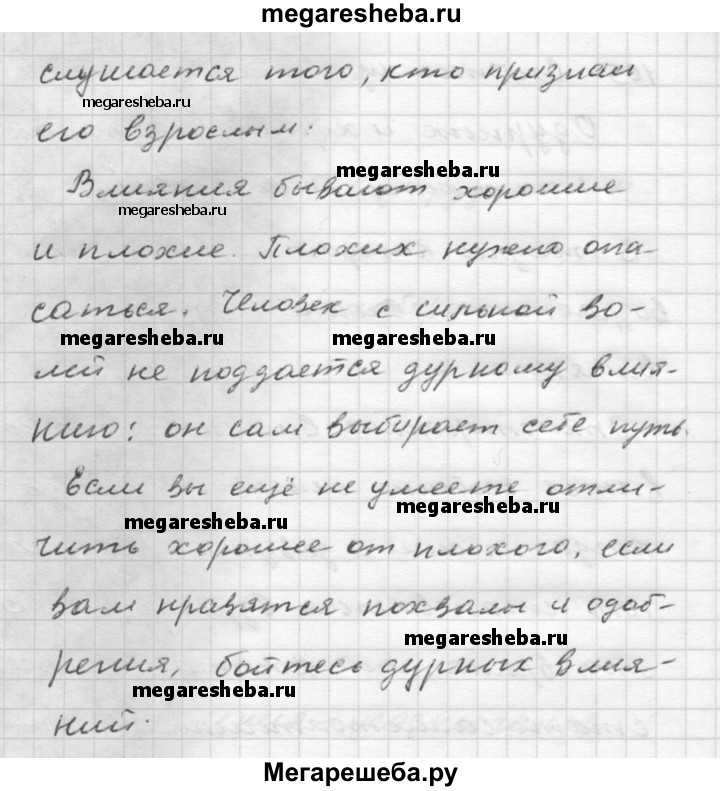 megaresheba.ru
слушается того, кто признал
megaresheba.ru
его взрослым.
megaresheba.ru
Влияния бывают хорошие
megaresheba.ru
и плохие. Плохих нужно опа-
саться. Человек с сильной во-
megaresheba.ru megaresheba.ru
лей не поддается дурному влия-
нию: он сам выбирает себе путь.
Если вы ещё не умеете отли-
megaresheba.ru megaresheba.ru
чить хорошее от плохого, если
вам нравятся похвалы и одоб-
megaresheba.ru
рения, бойтесь дурных влия-
megaresheba.ru
ний.
Мегарешеба.ру